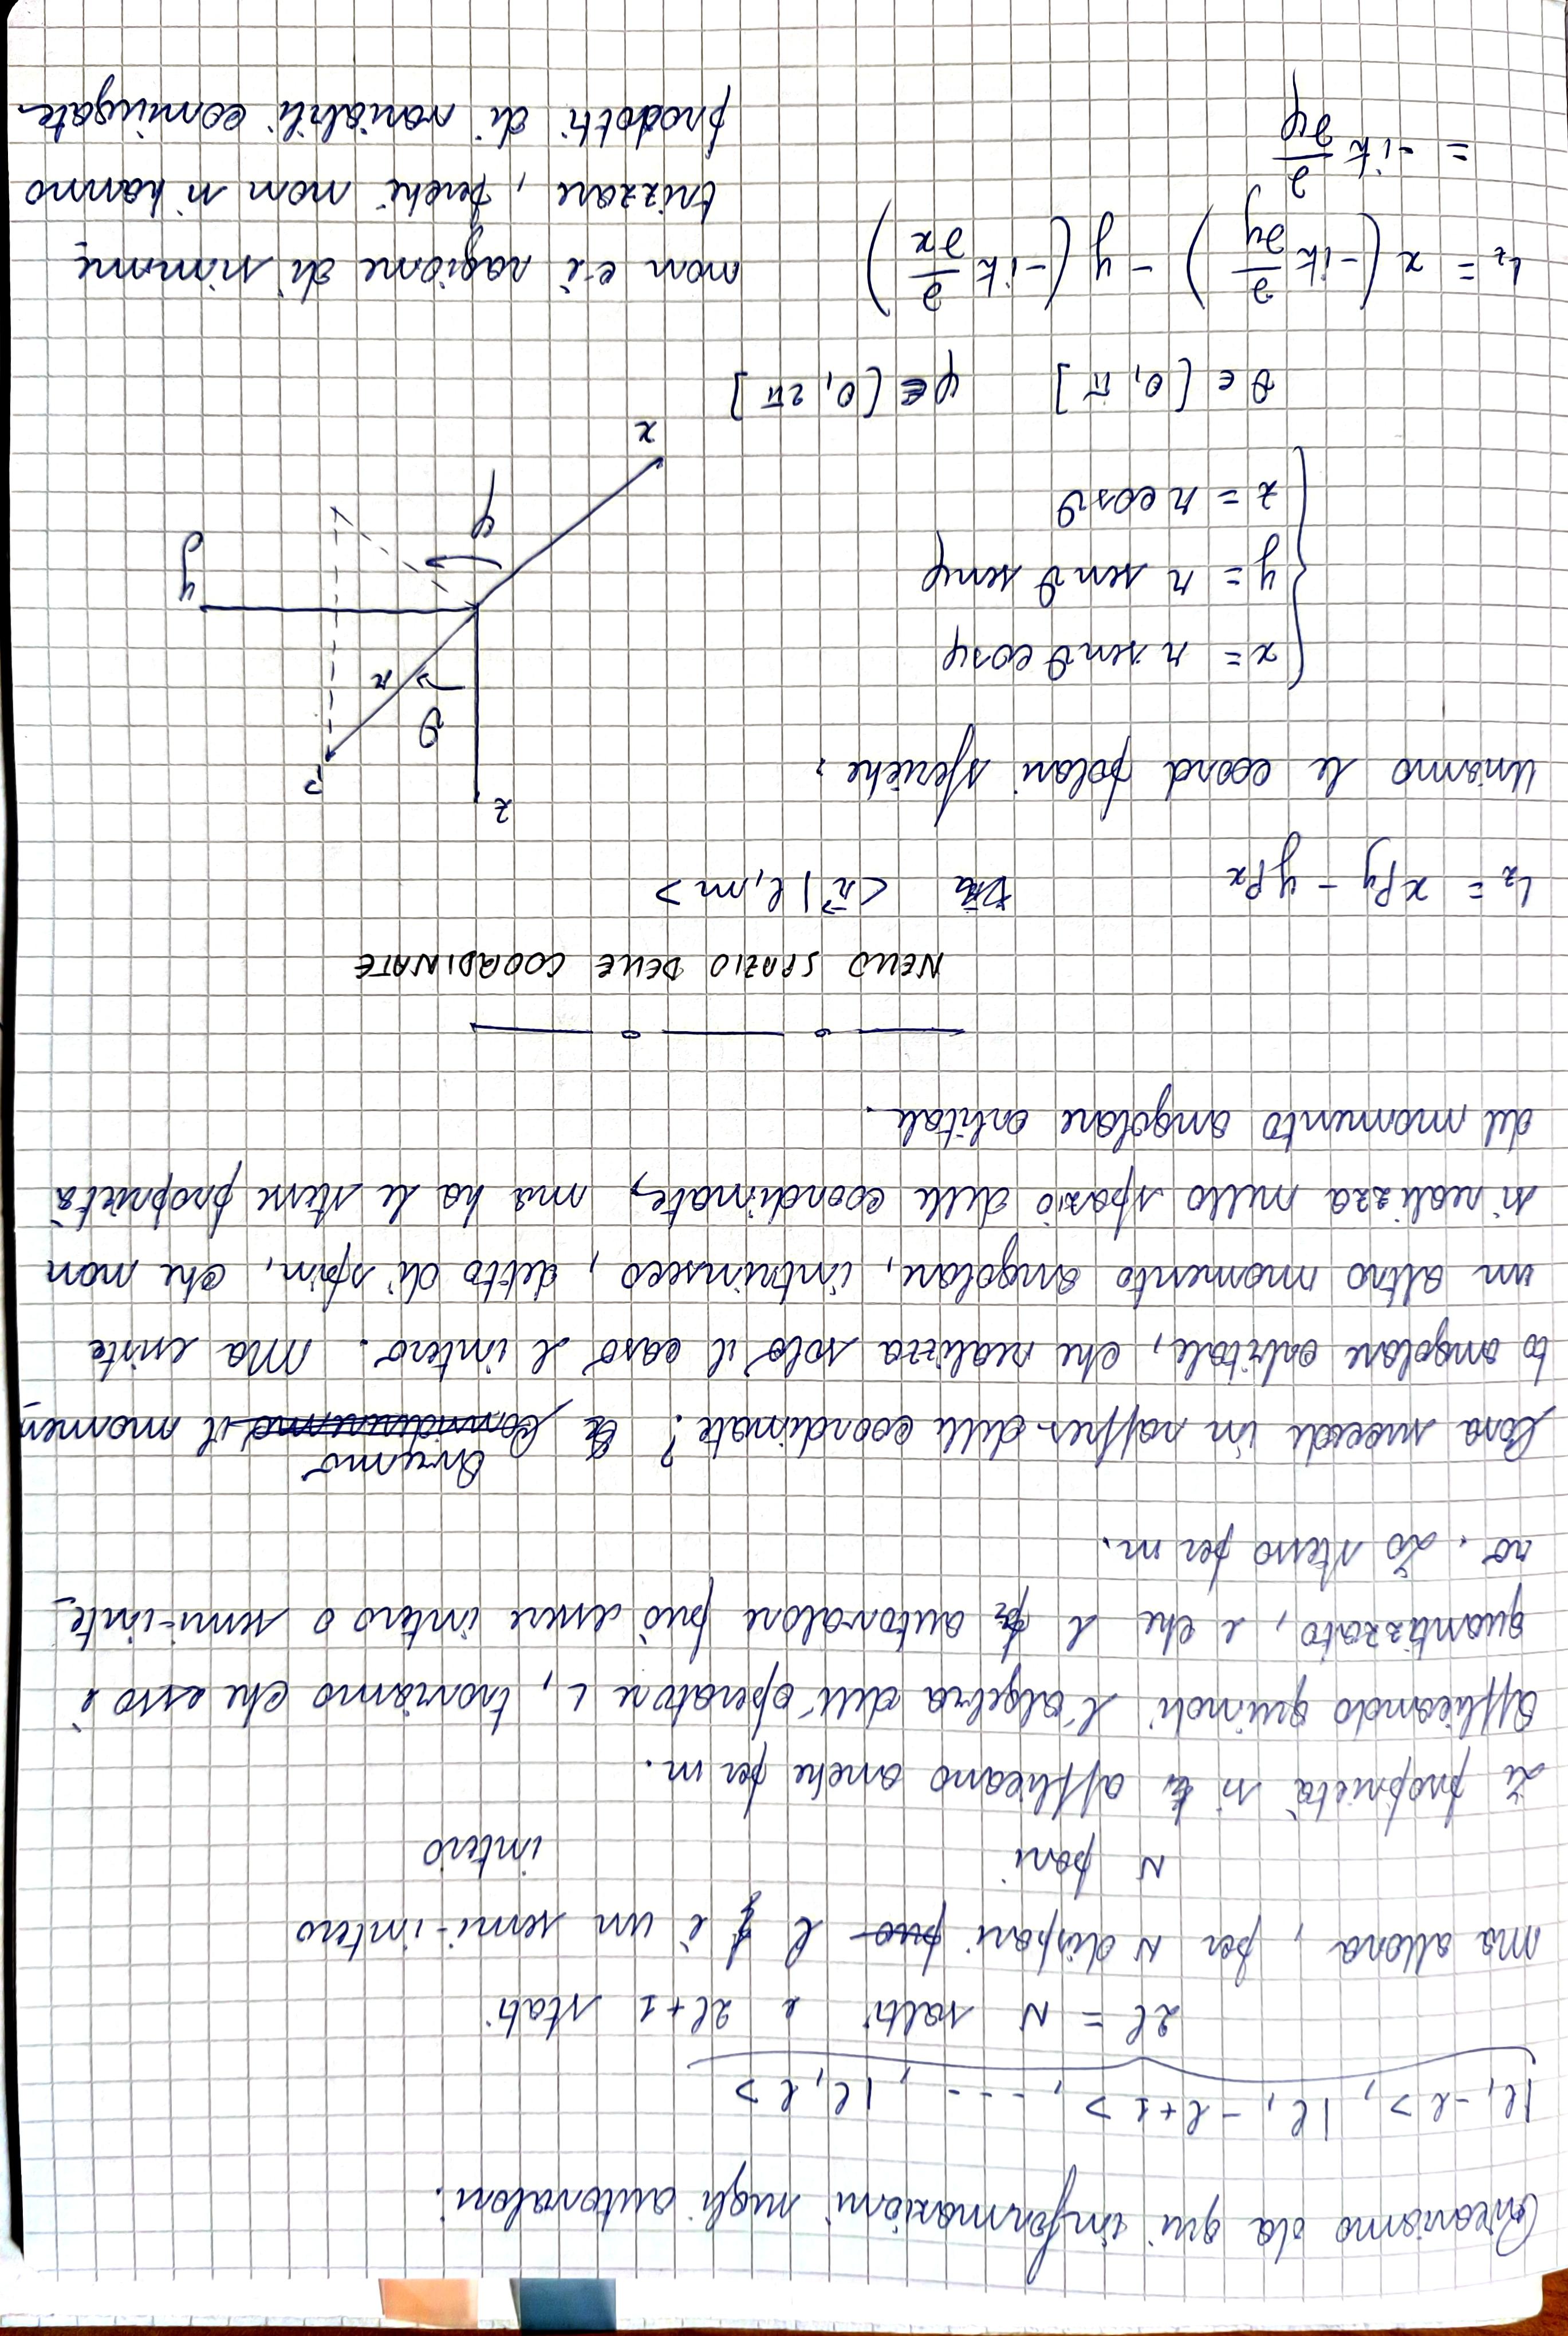 Ricaviamo da qui informazioni sugli autovalori:
|l, -l>, |l, -l+1>, ..., |l, l>
2l = N salti e 2l+1 stati
Ma allora, per N dispari l è un semi-intero
N pari intero
Le proprietà si applicano anche per m.
Applicando quindi l'algebra dell'operatore L, troviamo che esso è
quantizzato, e che l autovalore può essere intero o semi-inte_
ro. Lo stesso per m.
Cosa succede in rappres. delle coordinate? Avremo il momen_
to angolare orbitale, che realizza solo il caso l intero. Ma esiste
un altro momento angolare, intrinseco, detto di spin, che non
si realizza nello spazio delle coordinate, ma ha le stesse proprietà
del momento angolare orbitale.
NELLO SPAZIO DELLE COORDINATE
Lz = xPy - yPx <r⃗|l,m>
Usiamo le coord polari sferiche:
{ x = r senϑ cosφ
y = r senϑ senφ
z = r cosϑ
z
P
ϑ
r
y
φ
x
ϑ ∈ [0, π] φ ∈ [0, 2π]
Lz = x(-iħ ∂/∂y) - y(-iħ ∂/∂x)
= -iħ ∂/∂φ
non c'è ragione di simme_
trizzare, perché non si hanno
prodotti di variabili coniugate